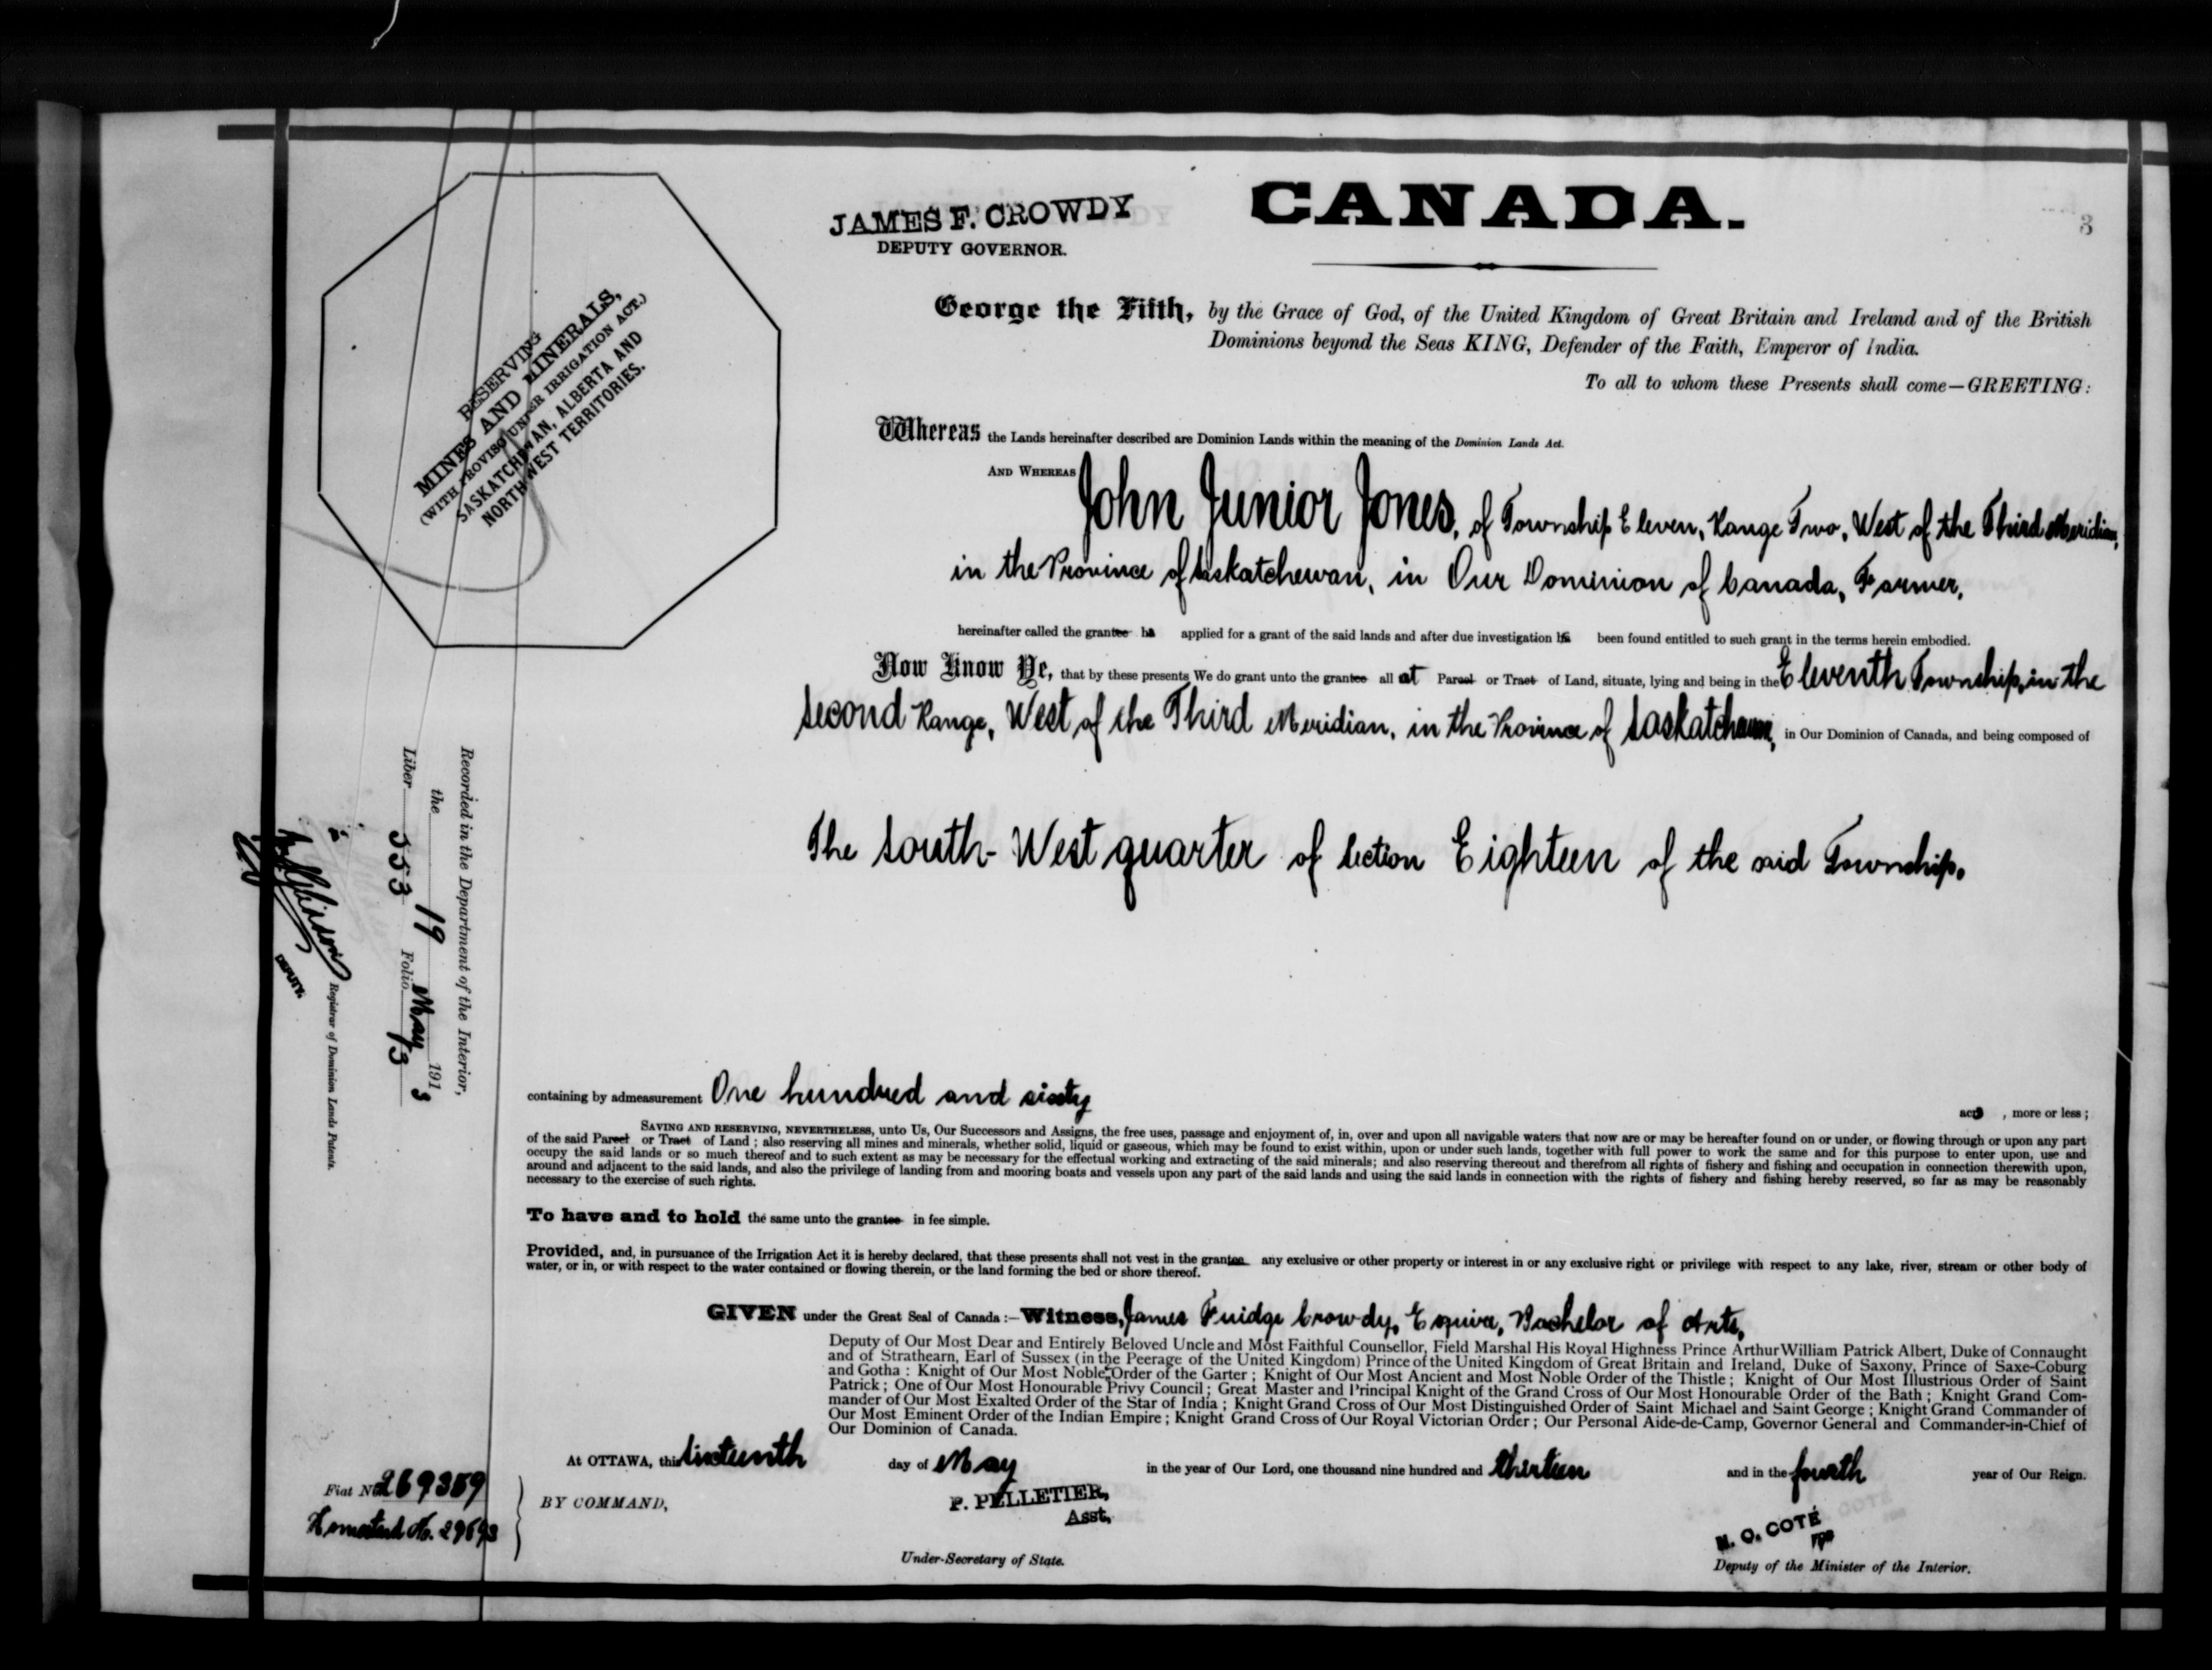 JAMES F. CROWDY
DEPUTY GOVERNOR.
CANADA.
3
George the Fifth, by the Grace of God, of the United Kingdom of Great Britain and Ireland and of the British
Dominions beyond the Seas KING, Defender of the Faith, Emperor of India.
To all to whom these Presents shall come—GREETING:
RESERVING
MINES AND MINERALS,
(WITH PROVISO UNDER IRRIGATION ACT.)
SASKATCHEWAN, ALBERTA AND
NORTH WEST TERRITORIES.
Whereas the Lands hereinafter described are Dominion Lands within the meaning of the Dominion Lands Act.
AND WHEREAS John Junior Jones, of Township Eleven, Range Two, West of the Third Meridian,
in the Province of Saskatchewan, in Our Dominion of Canada, Farmer,
hereinafter called the grantee ha applied for a grant of the said lands and after due investigation ha been found entitled to such grant in the terms herein embodied.
Now Know Ye, that by these presents We do grant unto the grantee all at Parcel or Tract of Land, situate, lying and being in the Eleventh Township, in the
Second Range, West of the Third Meridian, in the Province of Saskatchewan, in Our Dominion of Canada, and being composed of
The South-West quarter of Section Eighteen of the said Township.
Recorded in the Department of the Interior,
the 19 May 1913
Liber 553 Folio 13
Registrar of Dominion Lands Patents.
DEPUTY.
containing by admeasurement One hundred and sixty acres, more or less;
SAVING AND RESERVING, NEVERTHELESS, unto Us, Our Successors and Assigns, the free uses, passage and enjoyment of, in, over and upon all navigable waters that now are or may be hereafter found on or under, or flowing through or upon any part
of the said Parcel or Tract of Land; also reserving all mines and minerals, whether solid, liquid or gaseous, which may be found to exist within, upon or under such lands, together with full power to work the same and for this purpose to enter upon, use and
occupy the said lands or so much thereof and to such extent as may be necessary for the effectual working and extracting of the said minerals; and also reserving thereout and therefrom all rights of fishery and fishing and occupation in connection therewith upon,
around and adjacent to the said lands, and also the privilege of landing from and mooring boats and vessels upon any part of the said lands and using the said lands in connection with the rights of fishery and fishing hereby reserved, so far as may be reasonably
necessary to the exercise of such rights.
To have and to hold the same unto the grantee in fee simple.
Provided, and, in pursuance of the Irrigation Act it is hereby declared, that these presents shall not vest in the grantee any exclusive or other property or interest in or any exclusive right or privilege with respect to any lake, river, stream or other body of
water, or in, or with respect to the water contained or flowing therein, or the land forming the bed or shore thereof.
GIVEN under the Great Seal of Canada:—Witness, James Fuidge Crowdy, Esquire, Bachelor of Arts,
Deputy of Our Most Dear and Entirely Beloved Uncle and Most Faithful Counsellor, Field Marshal His Royal Highness Prince Arthur William Patrick Albert, Duke of Connaught
and of Strathearn, Earl of Sussex (in the Peerage of the United Kingdom) Prince of the United Kingdom of Great Britain and Ireland, Duke of Saxony, Prince of Saxe-Coburg
and Gotha: Knight of Our Most Noble Order of the Garter; Knight of Our Most Ancient and Most Noble Order of the Thistle; Knight of Our Most Illustrious Order of Saint
Patrick; One of Our Most Honourable Privy Council; Great Master and Principal Knight of the Grand Cross of Our Most Honourable Order of the Bath; Knight Grand Com-
mander of Our Most Exalted Order of the Star of India; Knight Grand Cross of Our Most Distinguished Order of Saint Michael and Saint George; Knight Grand Commander of
Our Most Eminent Order of the Indian Empire; Knight Grand Cross of Our Royal Victorian Order; Our Personal Aide-de-Camp, Governor General and Commander-in-Chief of
Our Dominion of Canada.
At OTTAWA, this Sixteenth day of May in the year of Our Lord, one thousand nine hundred and thirteen and in the fourth year of Our Reign.
Fiat No. 269359
Homestead No. 29693
BY COMMAND,
P. PELLETIER,
Asst.
Under-Secretary of State.
N. O. COTÉ
for
Deputy of the Minister of the Interior.